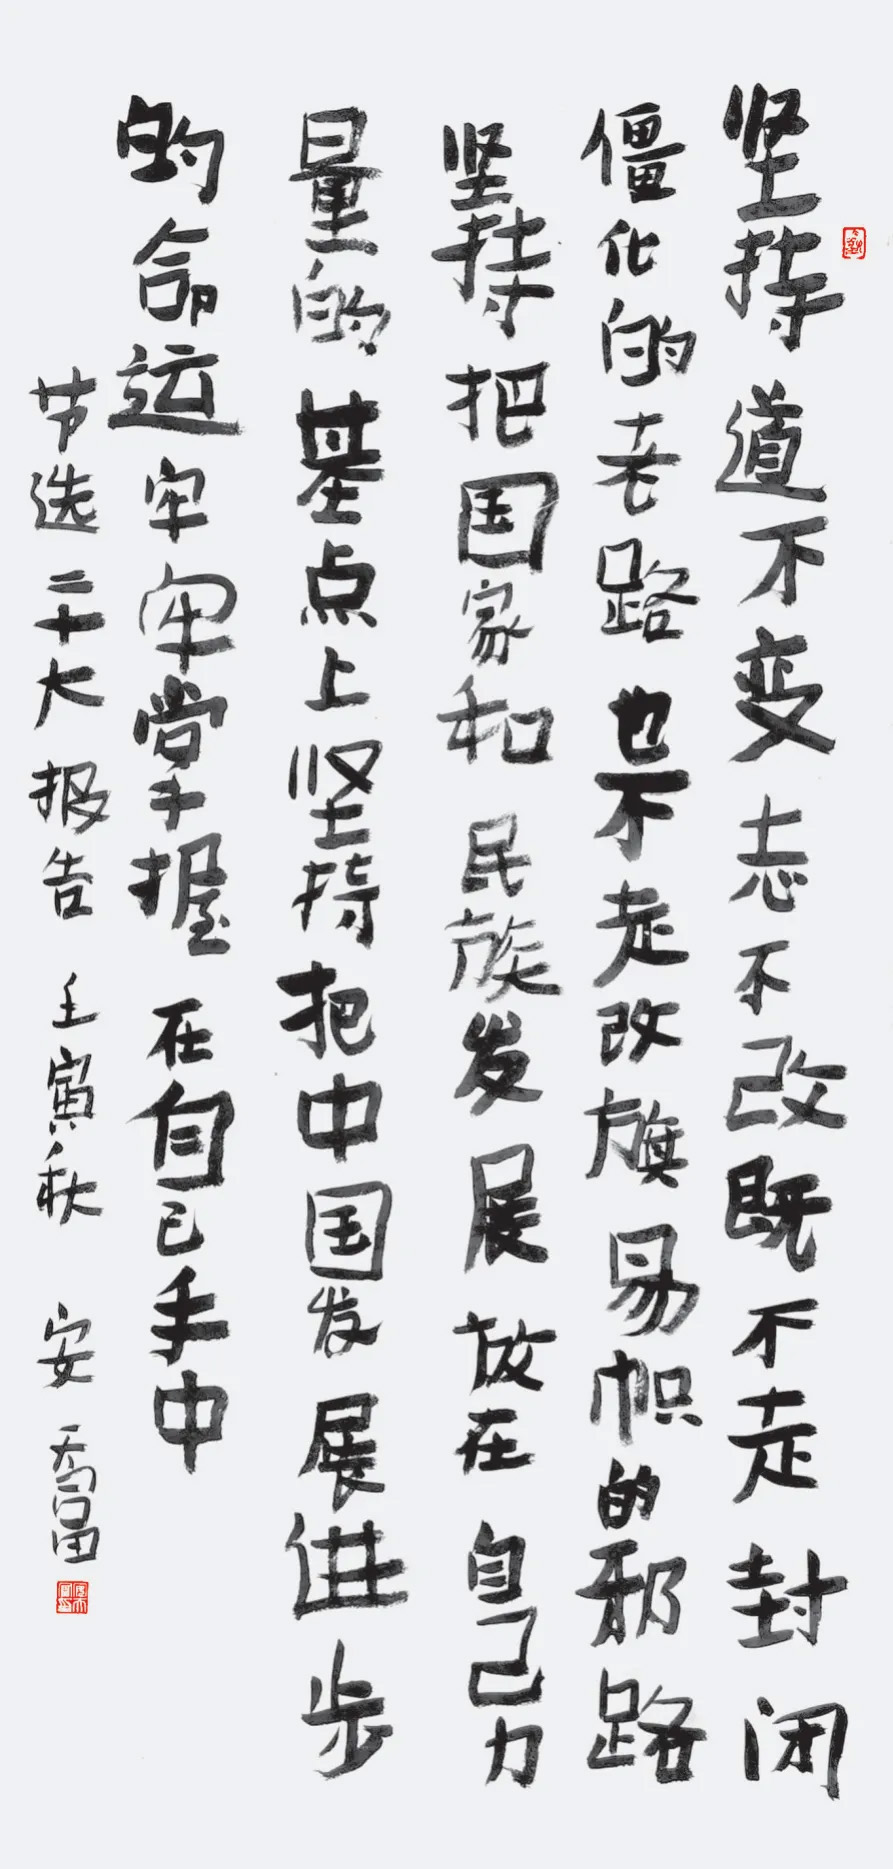 坚持道不变志不改既不走封闭
僵化的老路也不走改旗易帜的邪路
坚持把国家和民族发展放在自己力
量的基点上坚持把中国发展进步
的命运牢牢掌握在自己手中
节选二十大报告 壬寅秋 安